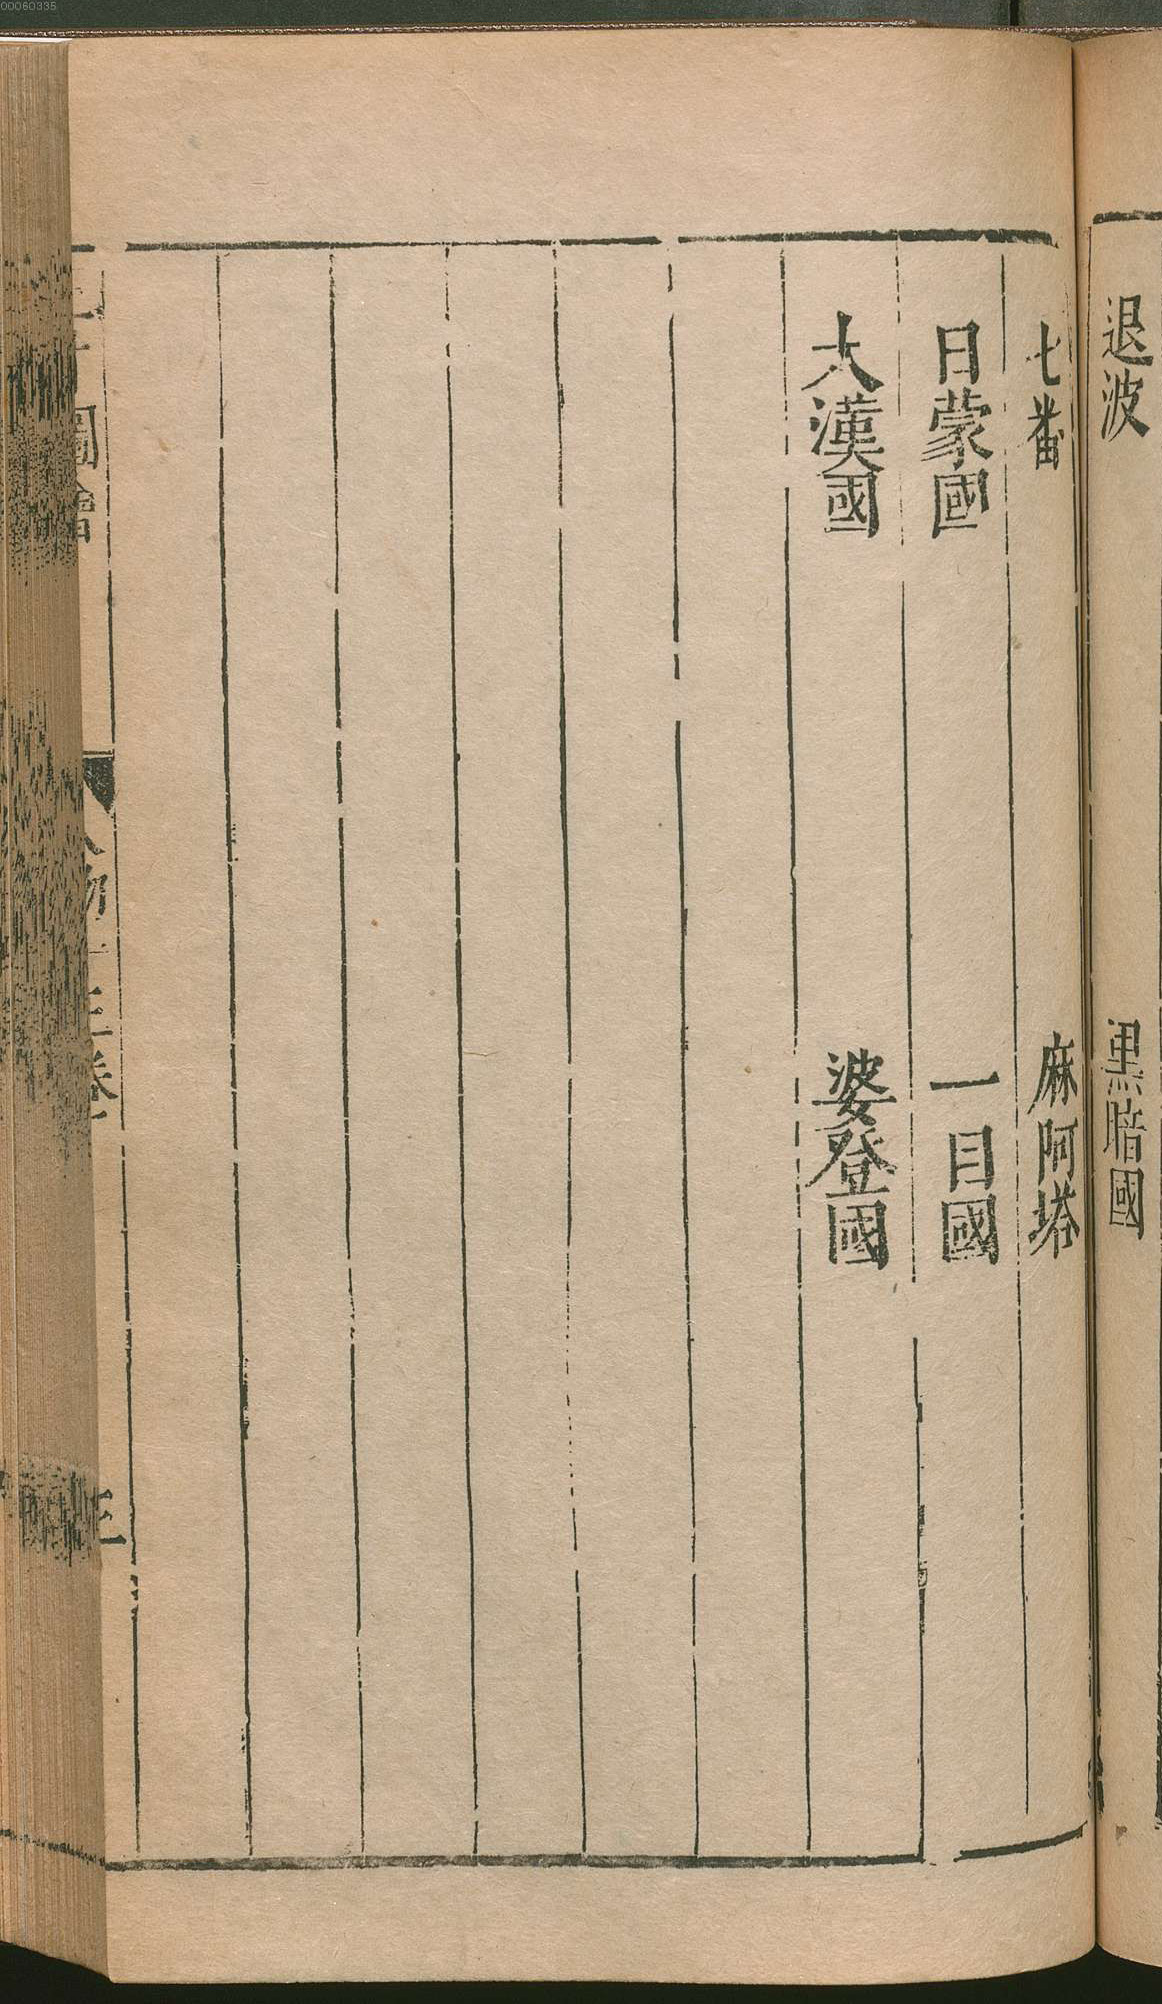 00060335
退波　黑暗國
七番　麻阿塔
日蒙國　一目國
大漢國　婆登國
圖會　人物十三卷　三